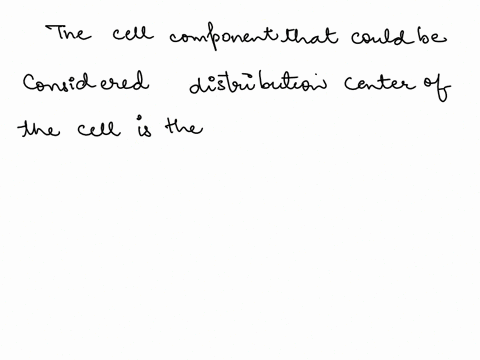 The cell component that could be
Considered distribution center of
the cell is the